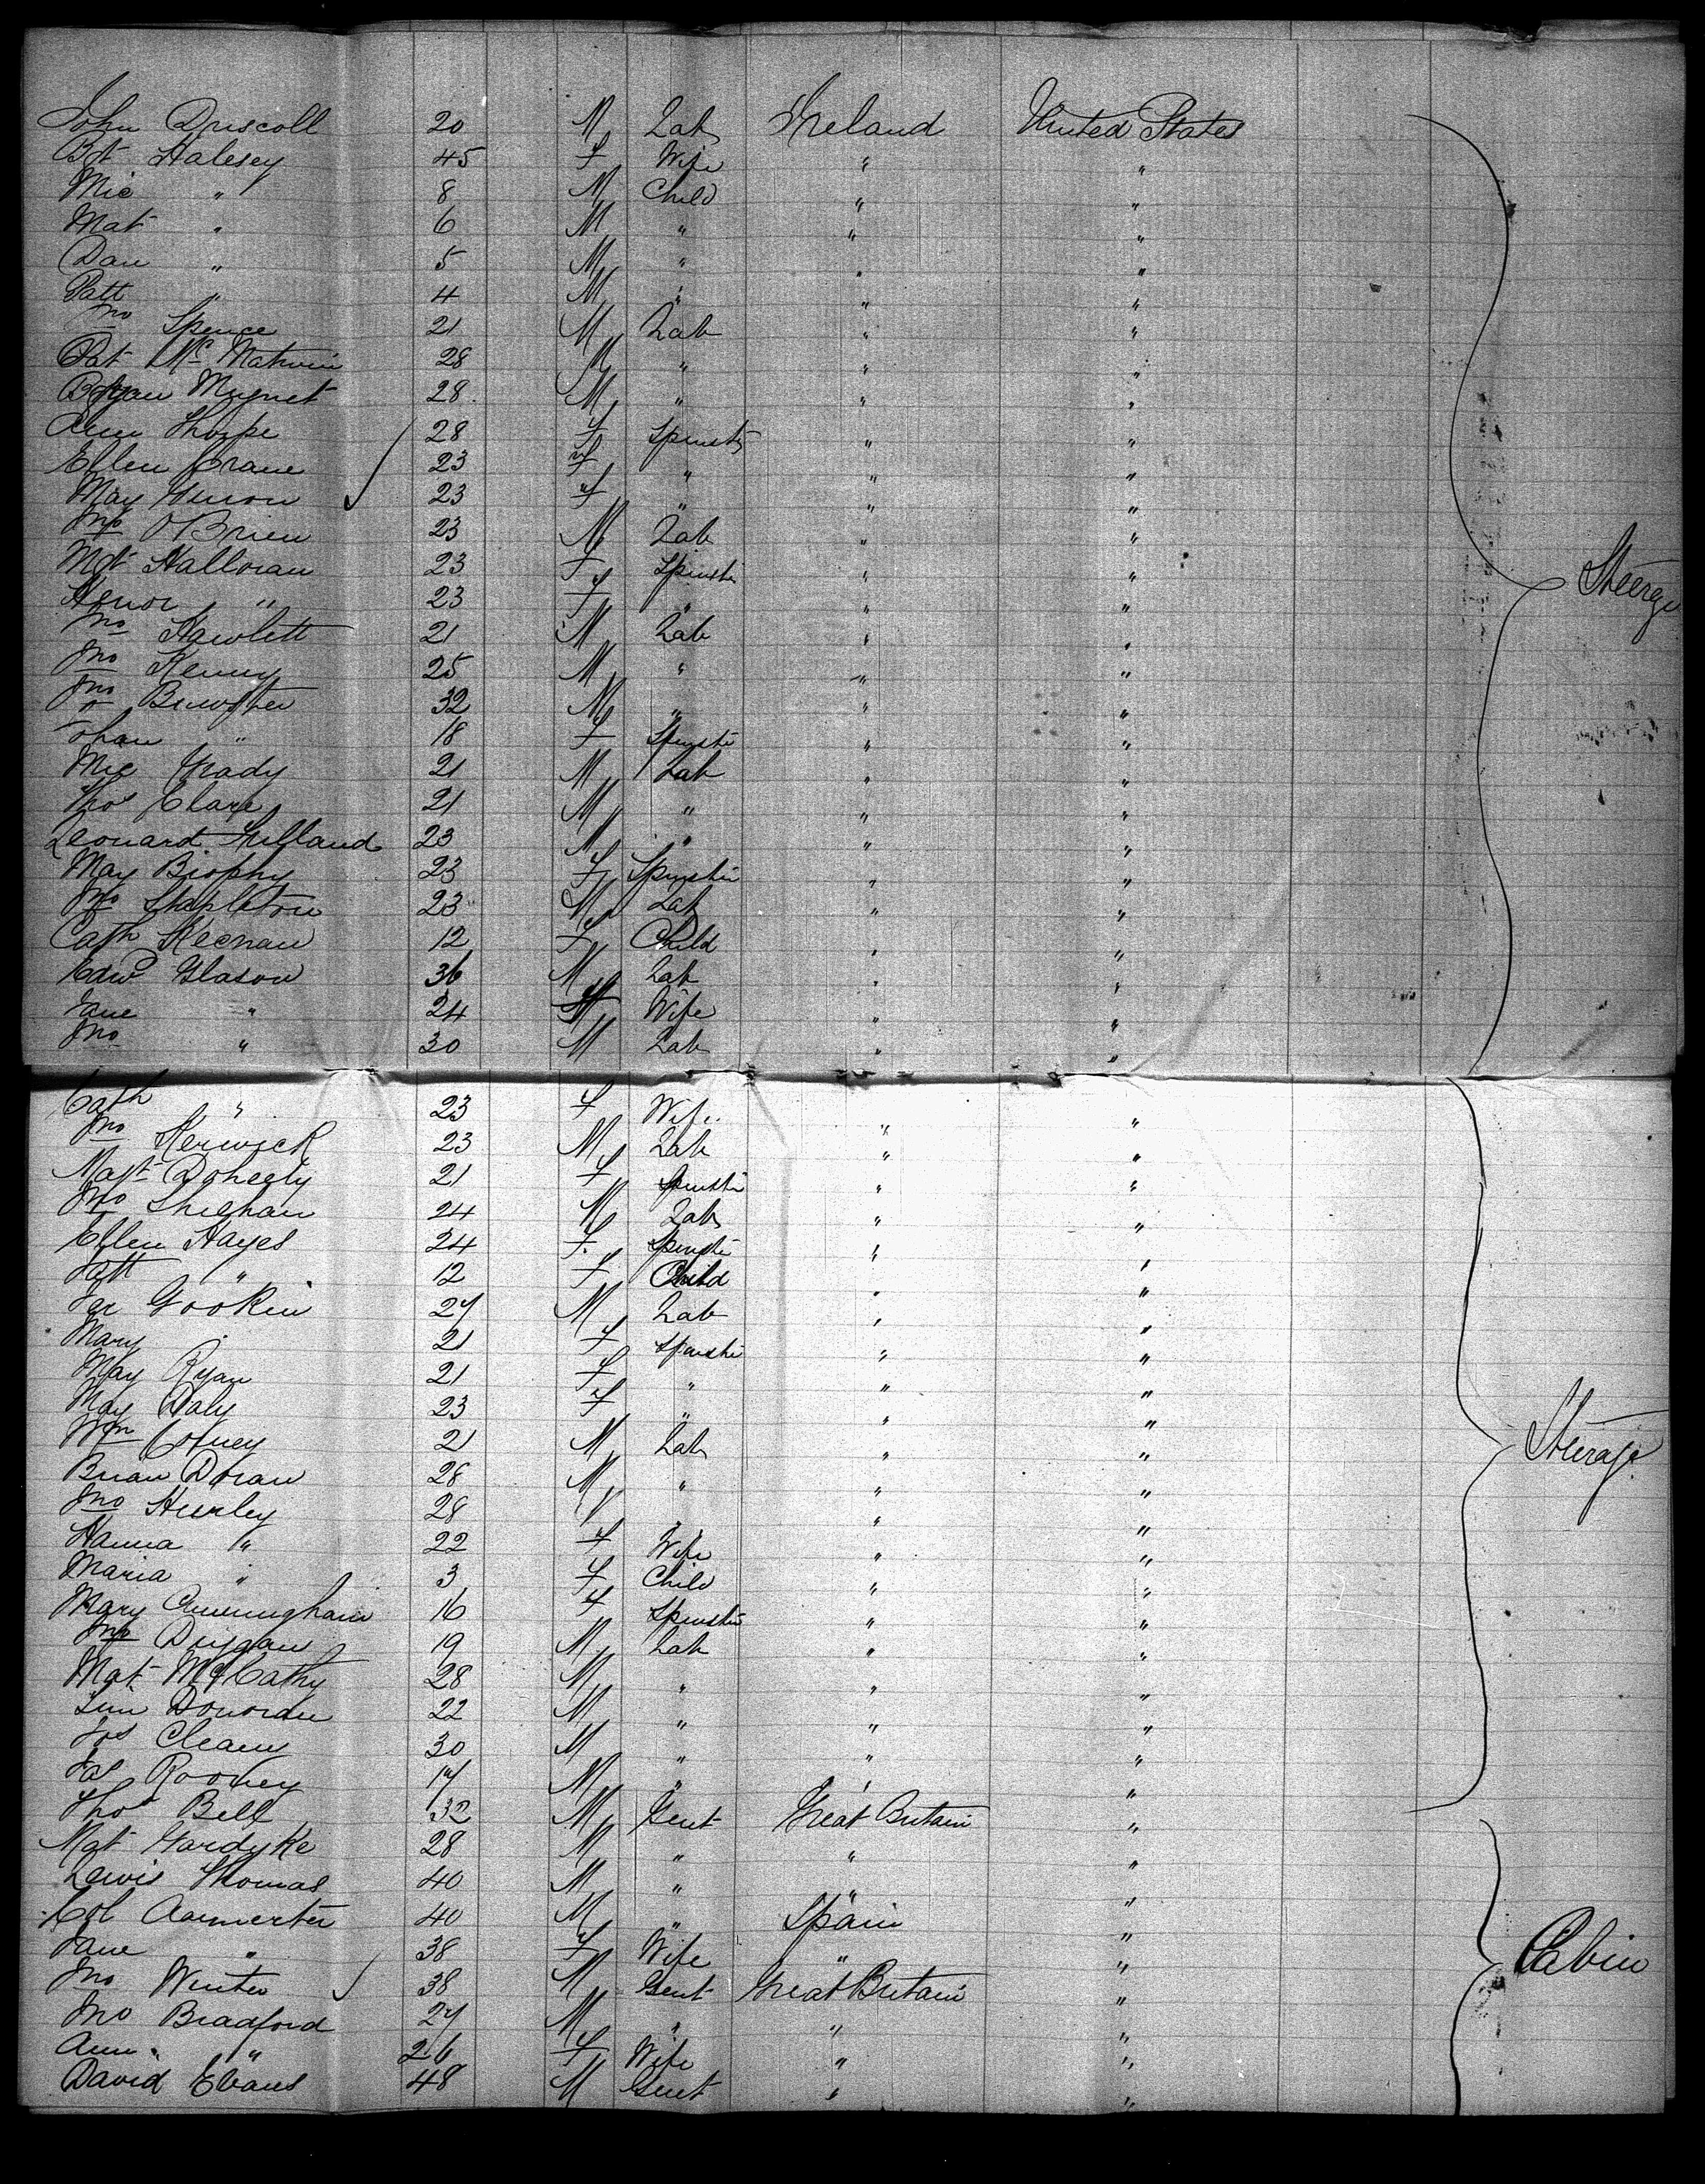 John Driscoll 20 M Lab Ireland United States
Bt Halesey 45 F Wife " "
Mic " 8 M Child " "
Mat " 6 M " " "
Dan " 5 M " " "
Patt " 4 M " " "
Jno Spence 21 M Lab " "
Pat Mc 28 M " " "
Bryan Mugnet 28 M " " "
Ann Thorpe 28 F Spinstr " "
Ellen Crane 23 F " " "
May 23 F " " "
Jno O'Brien 23 M Lab " "
Mgt Halloran 23 F Spinstr " "
Henor " 23 F " " "
Jno Hawlett 21 M Lab " "
Jno Kenny 25 M " " "
Jno Brewster 32 M " " "
Johan " 18 F Spinstr " "
Mic Grady 21 M Lab " "
Thos Clare 21 M " " "
Leonard 23 M " " "
May Brophy 23 F Spinstr " "
Jno Stapleton 23 M Lab " "
Cath Keenan 12 F Child " "
Edwd Glason 36 M Lab " "
Jane " 24 Wife " "
Jno " 30 M Lab " "
Steerage
Cath " 23 F Wife " "
Jno Kerwick 23 M Lab " "
Magt Dohegty 21 F Spinstr " "
Jno Sheehan 24 M Lab " "
Ellen Hayes 24 F Spinstr " "
Patt " 12 F Child " "
Jer Gookin 27 M Lab " "
Mary " 21 F Spinstr " "
May Ryan 21 F " " "
May Daly 23 F " " "
Wm Cotney 21 M Lab " "
Brian Doran 28 M " " "
Jno Hurley 28 M " " "
Hanna " 22 F Wife " "
Maria " 3 F Child " "
Mary Cunningham 16 F Spinstr " "
Jno Dugan 19 M Lab " "
Mat McCathy 28 M " " "
Tim Donovan 22 M " " "
Jos Cleary 30 M " " "
Jas Rooney 17 M " " "
Steerage
Thos Bell 32 M Gent Great Britain "
Mat Gardyke 28 M " " "
Lewis Thomas 40 M " " "
Col 40 M " Spain "
Jane " 38 F Wife " "
Jno Winter 38 M Gent Great Britain "
Jno Bradford 27 M " " "
Ann " 26 F Wife " "
David Evans 48 M Gent " "
Cabin